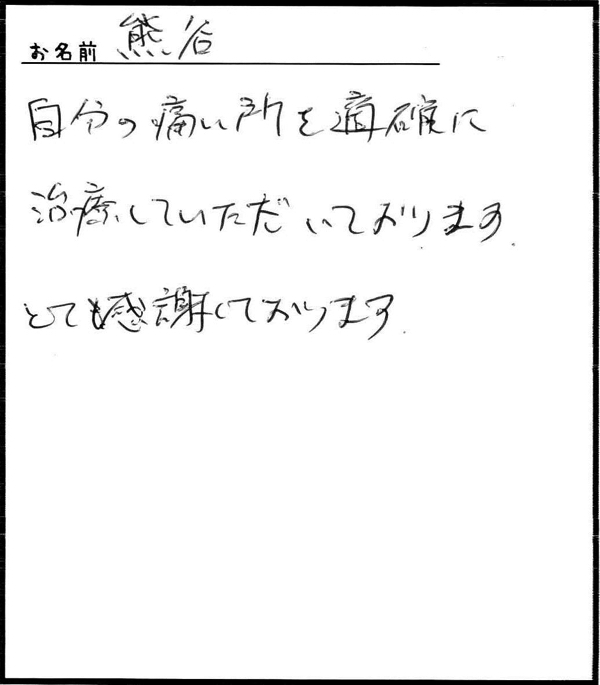 お名前 熊谷
自分の痛い所を適確に
治療していただいております
とても感謝しております